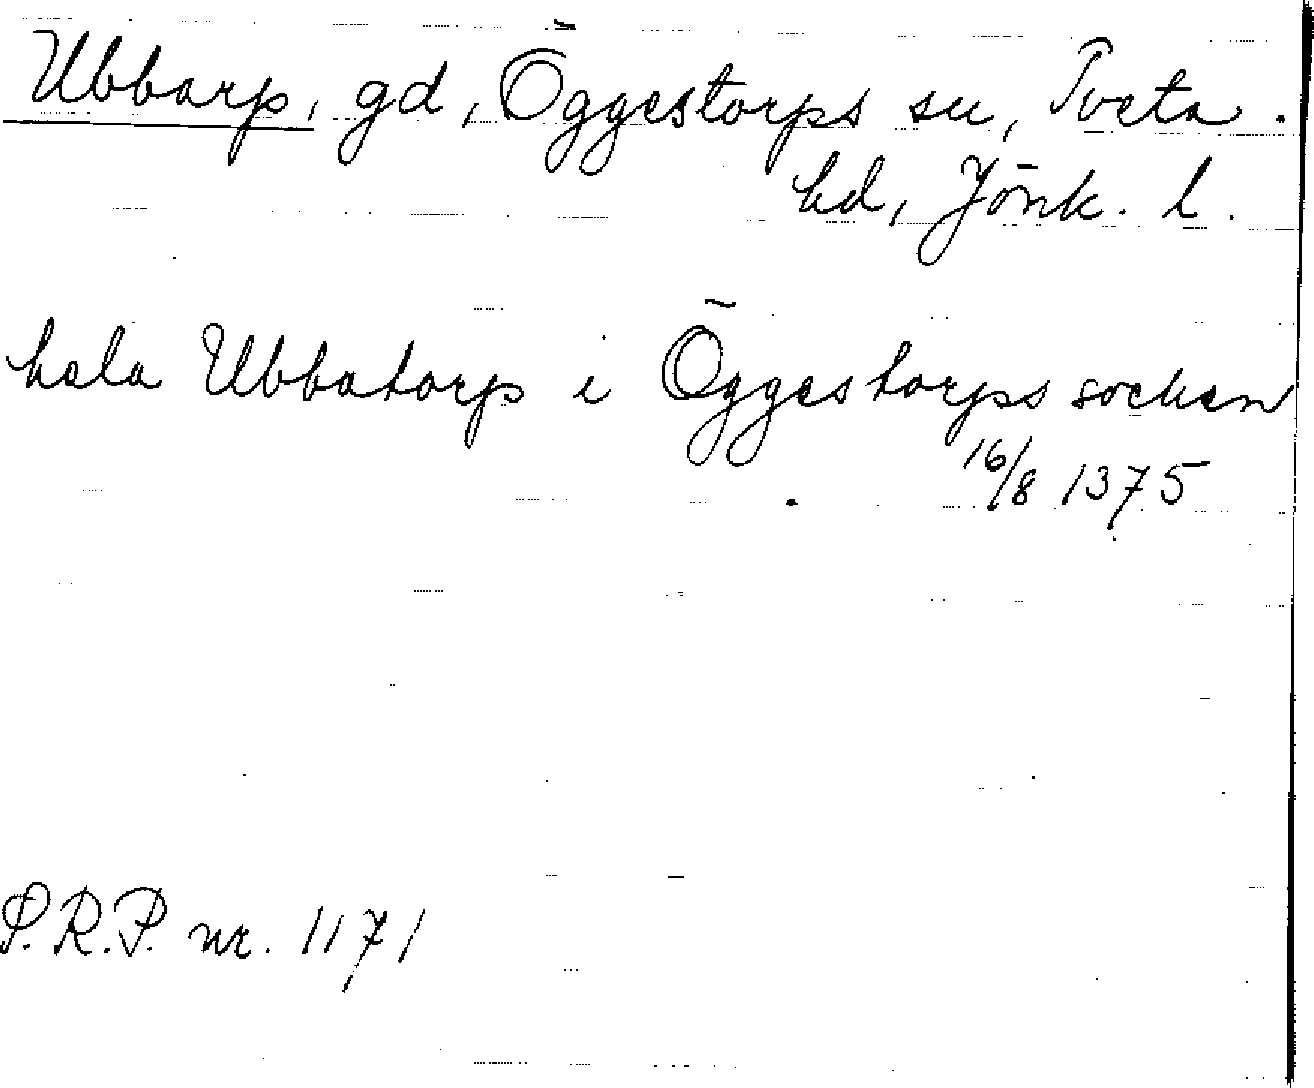 Ubbarp, gd, Öggestorps sn, Tveta
hd, Jönk. l.
hela Ubbatorp i Öggestorps socken
16/8 1375
P.R.P. nr. 1171